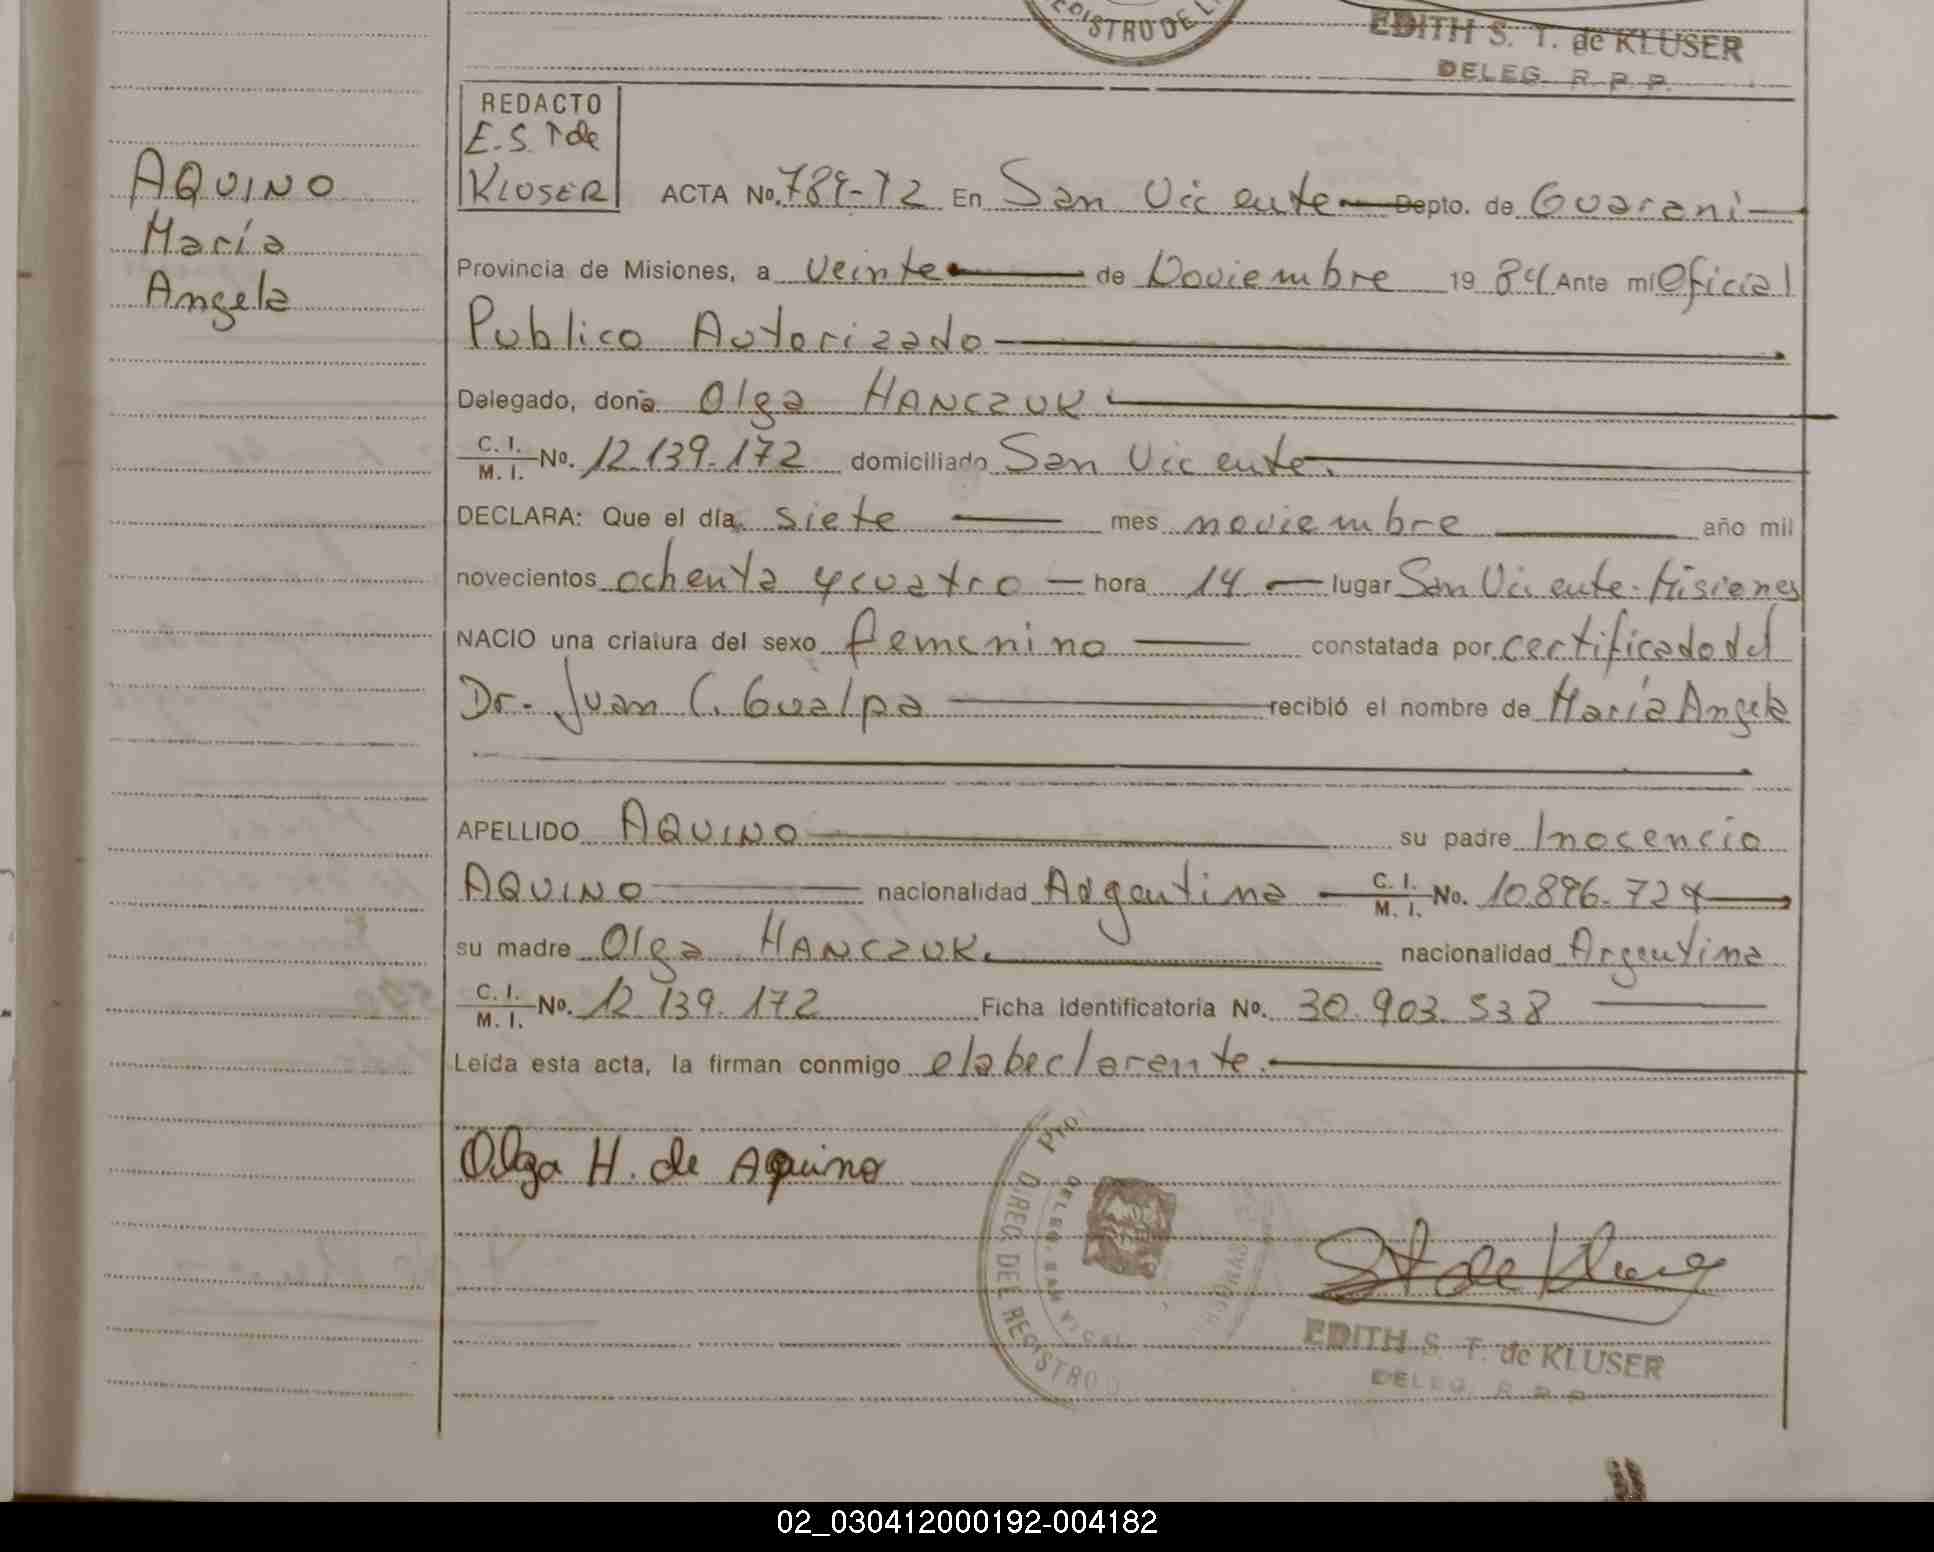 EDITH S. T. de KLUSER
DELEG. R. P. P.
REDACTO
E.S.T de
KLUSER
AQUINO
María
Angela
ACTA No. 789-72 En San Vicente Depto. de Guarani
Provincia de Misiones, a veinte de Noviembre 19 84 Ante mi Oficial
Publico Autorizado
Delegado, doña Olga HANCZUK
C. I.
M. I. No. 12.139.172 domiciliado San Vicente.
DECLARA: Que el día siete mes noviembre año mil
novecientos ochenta y cuatro hora 14 lugar San Vicente. Misiones
NACIO una criatura del sexo femenino constatada por certificado del
Dr. Juan C. Gualpa recibió el nombre de María Angela
APELLIDO AQUINO su padre Inocencio
AQUINO nacionalidad Adgentina C. I.
M. I. No. 10.896.724
su madre Olga HANCZUK. nacionalidad Argentina
C. I.
M. I. No. 12 139. 172 Ficha identificatoria No. 30.903.538
Leída esta acta, la firman conmigo
Olga H. de Aquino
DIREC. DEL REGISTRO
DELEG. SAN VICEN
EDITH S. T. de KLUSER
DELEG. R. P. P.
02_030412000192-004182